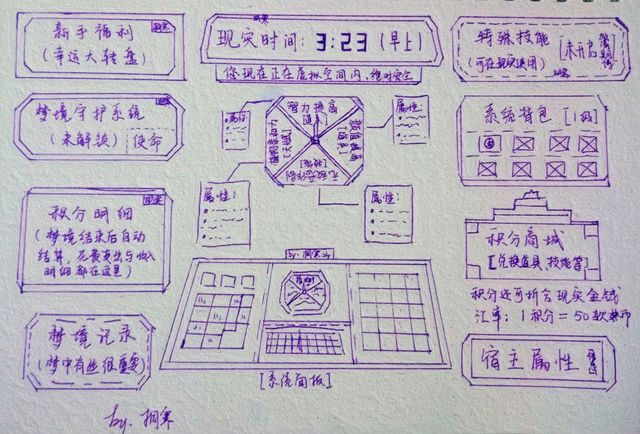 新手福利
(幸运大转盘)
现实时间: 3:23 (早上)
您现在正在虚拟空间内,绝对安全
特殊技能
(可在现实使用)
未开启
梦境守护系统
(未解锁)
使命
智力提高
属性:
属性:
属性:
属性:
系统背包 [1级]
积分明细
(梦境结束后自动
结算,花费支出与收入
明细都在这里)
积分商城
[兑换道具、技能等]
积分还可折合现实金钱
汇率: 1积分=50软妹币
梦境记录
(梦中有些很重要)
[系统面板]
宿主属性
by.